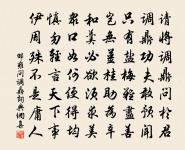 請將調鼎問於君
調鼎功夫敢預聞
只有鹽梅難盡善
豈無薑桂助為辛
和羹必欲須求美
眾口如何便得均
慎勿輕言天下事
伊周殊不是庸人
邵雍問調鼎詞典網